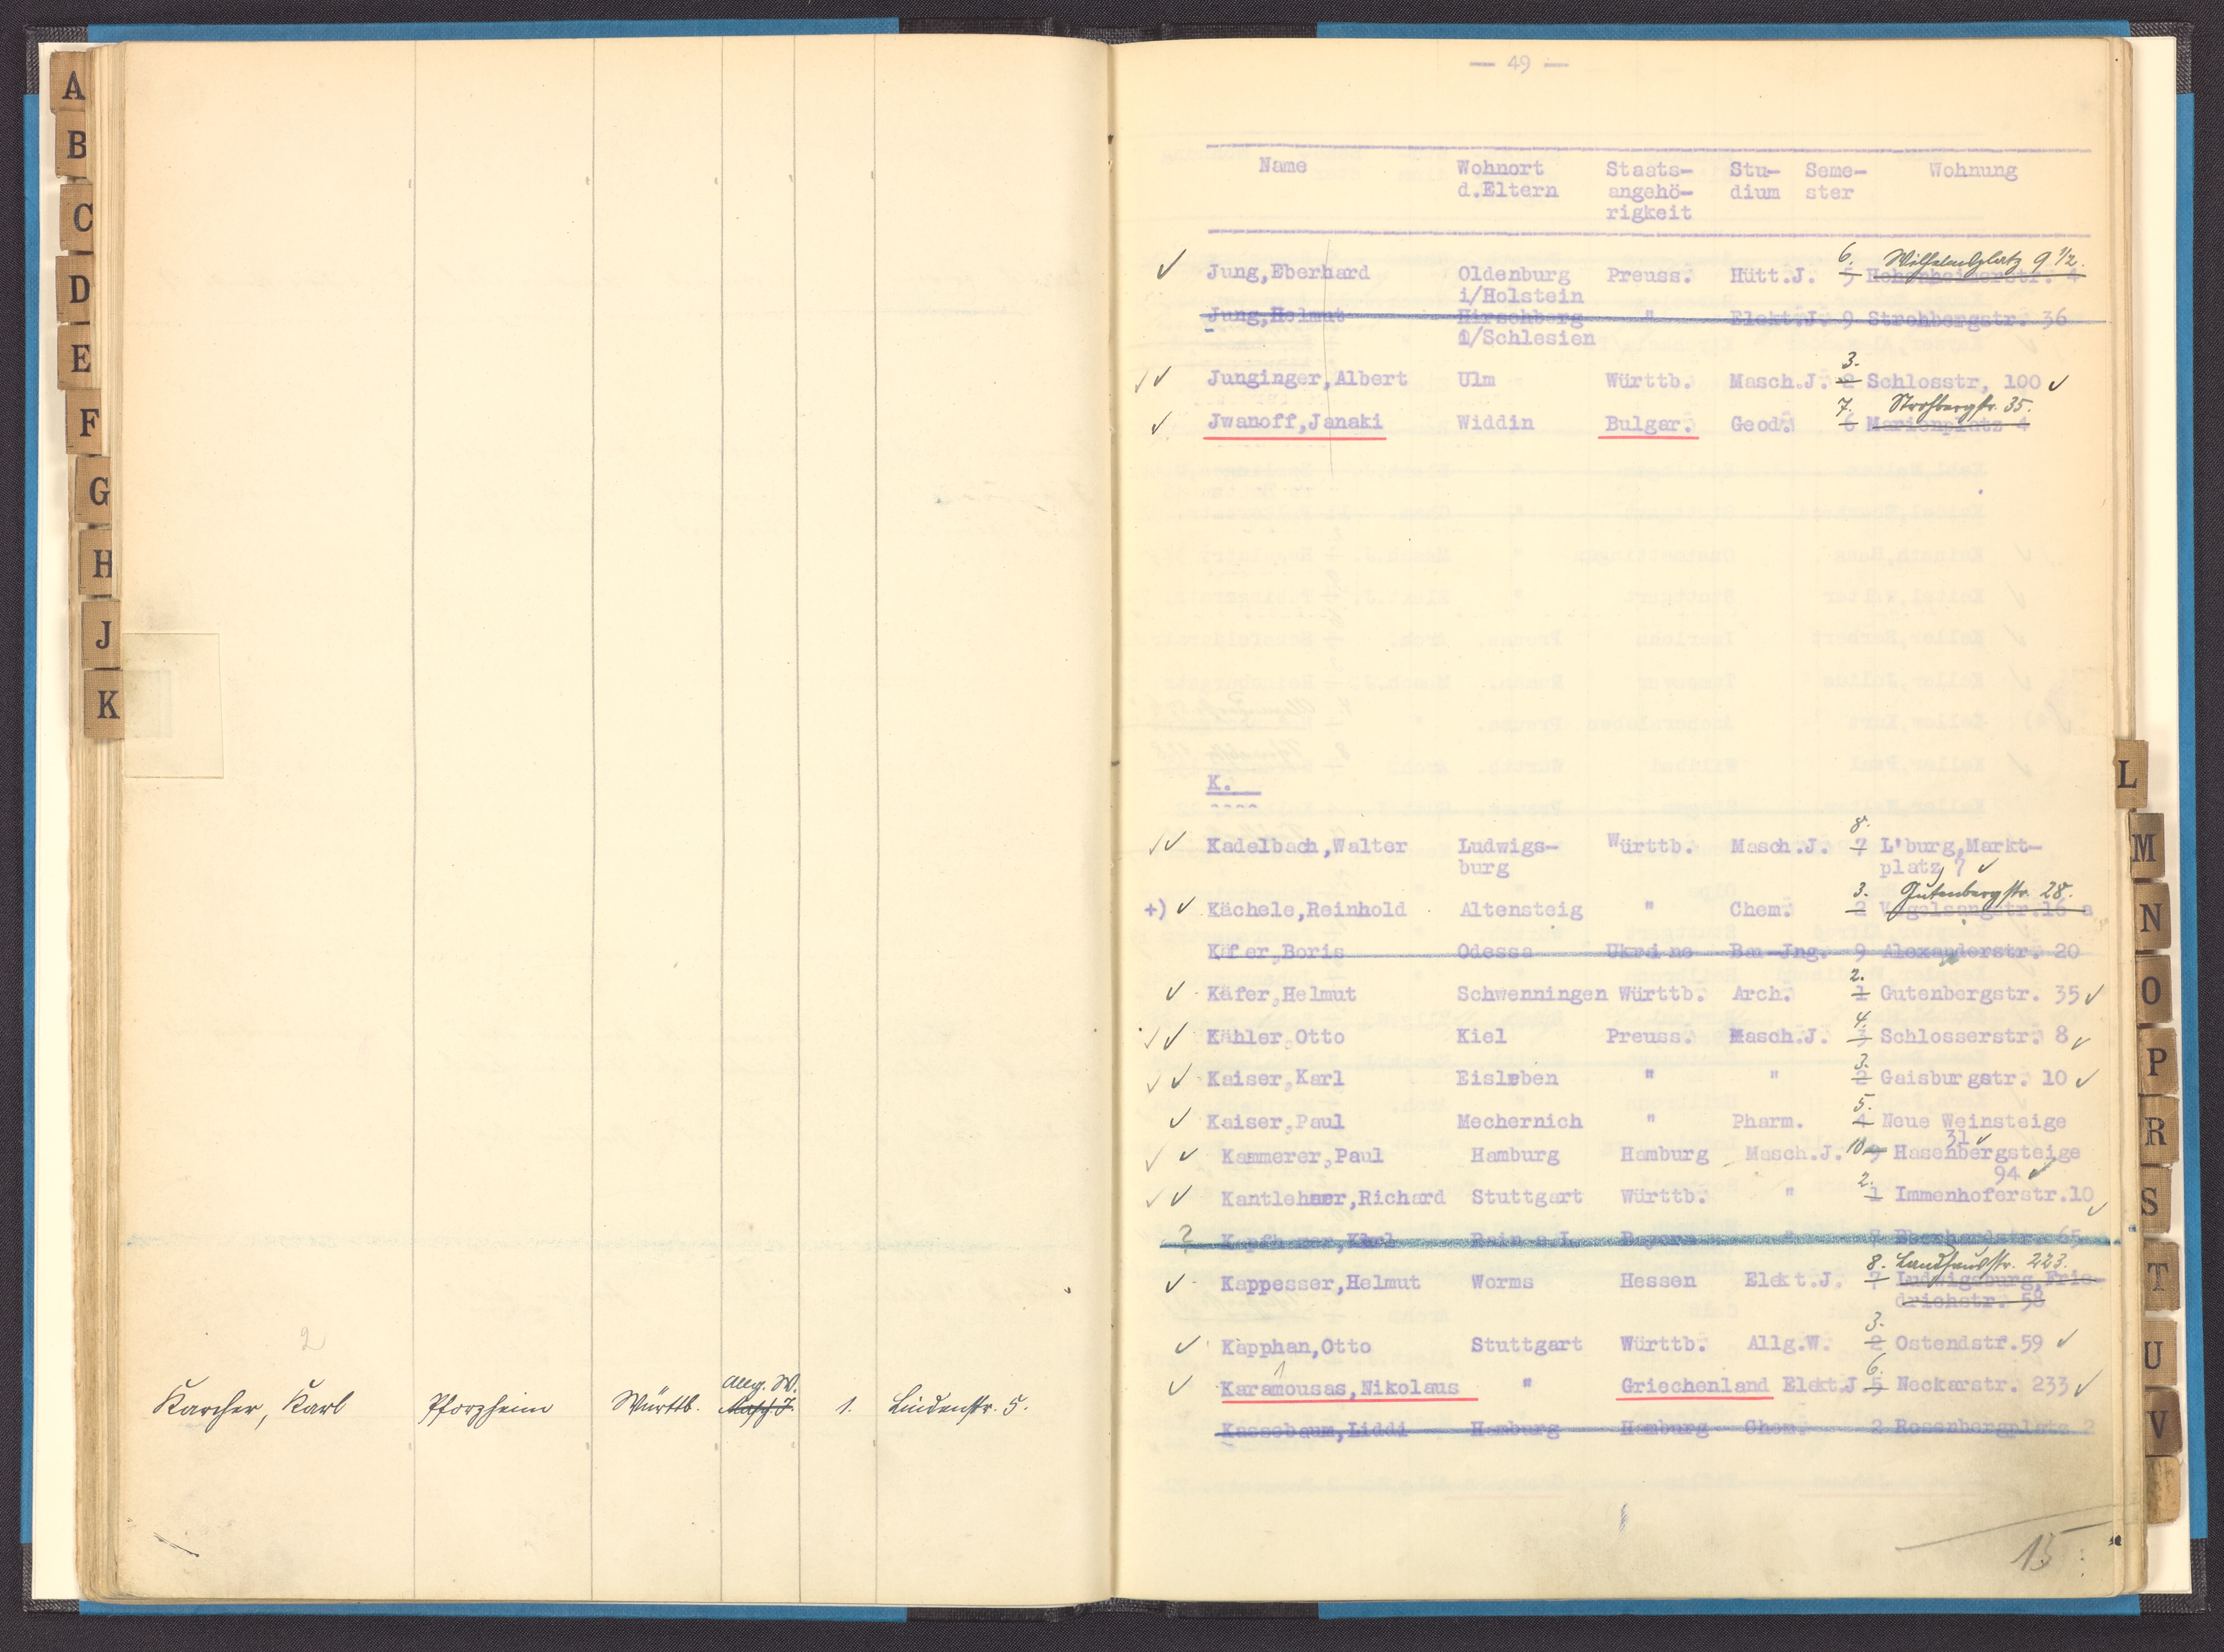 A
B
C
D
E
F
G
H
J
K
2
Karcher, Karl Pforzheim Württb. Allg. W. Masch J. 1. Lindenstr. 5.
— 49 —
Name Wohnort Staats- Stu- Seme- Wohnung
d.Eltern angehö- dium ster
rigkeit
6. Wilhelmsplatz 9 1/2.
✓ Jung,Eberhard Oldenburg Preuss. Hütt.J. 5 Hohenheimerstr. 4
i/Holstein
Jung,Helmut Hirschberg " Elekt.J. 9 Strohbergstr. 36
i/Schlesien
3.
✓✓ Junginger,Albert Ulm Württb. Masch.J. 2 Schlosstr, 100 ✓
7. Strohbergstr. 35.
✓ Jwanoff,Janaki Widdin Bulgar. Geod. 6 Marienplatz 4
K.
8.
✓✓ Kadelbach,Walter Ludwigs- Württb. Masch.J. 7 L'burg,Markt-
burg platz 7 ✓
3. Gutenbergstr. 28.
+) ✓ Kächele,Reinhold Altensteig " Chem. 2 Vogelsangstr.16 a
Käfer,Boris Odessa Ukraine Bau-Jng. 9 Alexanderstr. 20
2.
✓ Käfer,Helmut Schwenningen Württb. Arch. 1 Gutenbergstr. 35 ✓
4.
✓✓ Kähler,Otto Kiel Preuss. Masch.J. 3 Schlosserstr. 8 ✓
3.
✓✓ Kaiser,Karl Eisleben " " 2 Gaisburgstr. 10 ✓
5.
✓ Kaiser,Paul Mechernich " Pharm. 4 Neue Weinsteige
31 ✓
✓✓ Kammerer,Paul Hamburg Hamburg Masch.J. 10 9 Hasenbergsteige
94 ✓
2.
✓✓ Kantlehner,Richard Stuttgart Württb. " 1 Immenhoferstr.10 ✓
? Rain a.L. Bayern " 7 Eberhardstr. 65
8. Landhausstr. 223.
✓ Kappesser,Helmut Worms Hessen Elekt.J. 7 Ludwigsburg,Frie-
drichstr. 58
3.
✓ Kapphan,Otto Stuttgart Württb. Allg.W. 2 Ostendstr.59 ✓
6.
✓ Karamousas,Nikolaus " Griechenland Elekt.J. 5 Neckarstr. 233 ✓
Kassebaum,Liddi Hamburg Hamburg Chem. 2 Rosenbergplatz 2
15
L
M
N
O
P
R
S
T
U
V